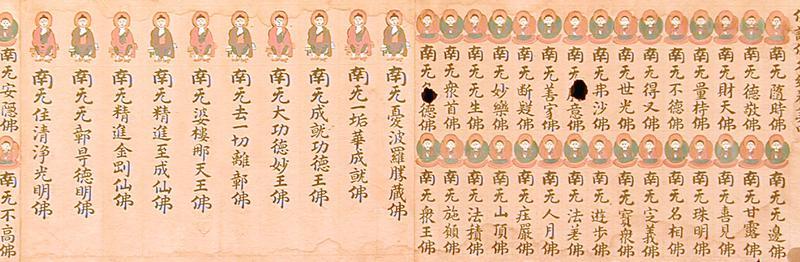 南无隨時佛
南无德敬佛
南无財天佛
南无量持佛
南无不德佛
南无得叉佛
南无世光佛
南无弗沙佛
南无意佛
南无善佛
南无断疑佛
南无妙樂佛
南无无生佛
南无衆首佛
南无德佛
南无无邊佛
南无甘露佛
南无喜見佛
南无珠明佛
南无名相佛
南无定義佛
南无寳衆佛
南无遊步佛
南无法差佛
南无人月佛
南无庄嚴佛
南无山頂佛
南无法積佛
南无施願佛
南无衆王佛
南无憂波羅勝藏佛
南无一垢華成就佛
南无成就功德王佛
南无大功德妙王佛
南无去一切離鄣佛
南无婆樓那天王佛
南无精進至成仙佛
南无精進金剛仙佛
南无无鄣导德明佛
南无住清淨光明佛
南无安隱佛
南无不高佛